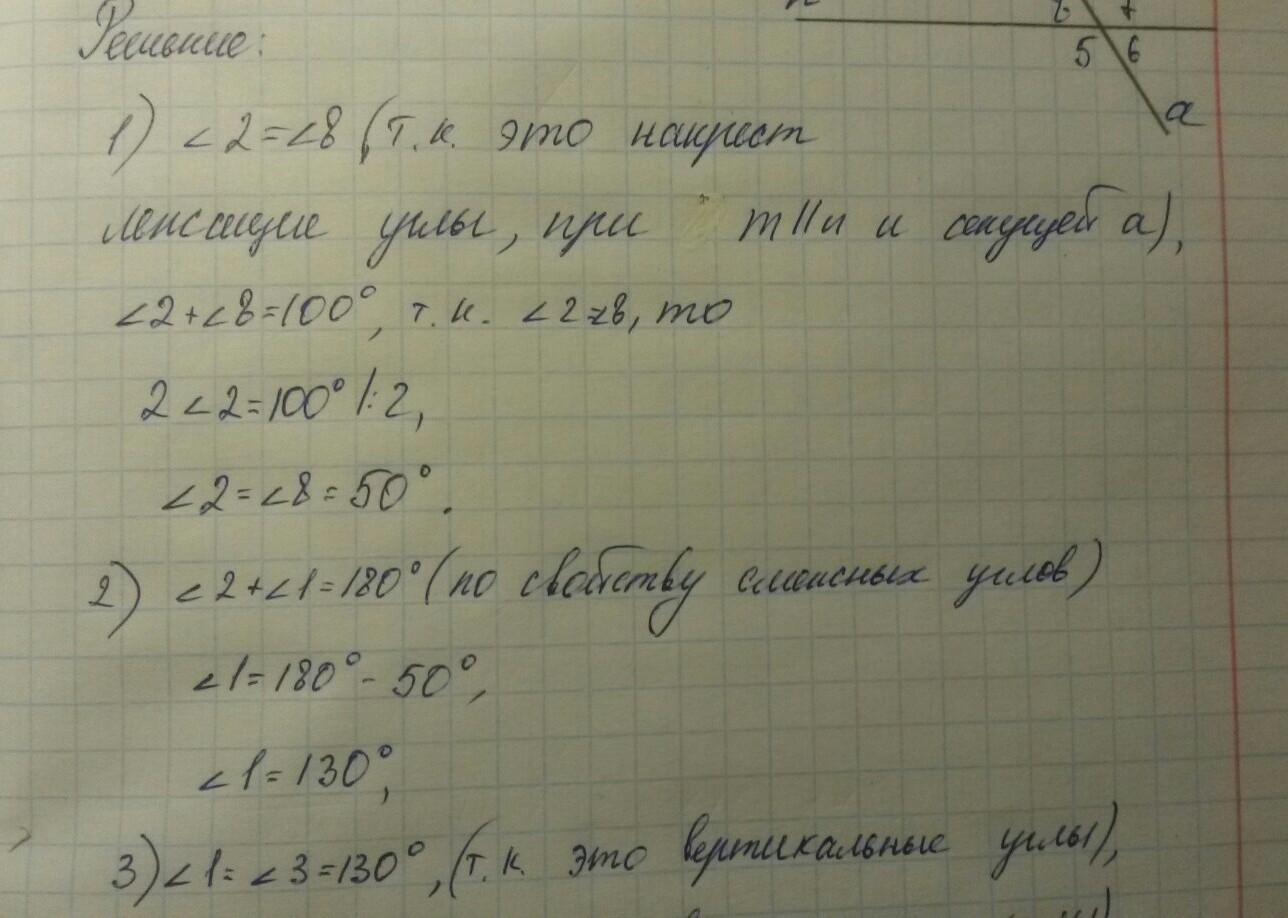 8 7
5 6
a
Решение:
1) ∠2=∠8 (т.к. это накрест
лежащие углы, при m||n и секущей a),
∠2+∠8=100°, т.к. ∠2=8, то
2∠2=100° |:2,
∠2=∠8=50°.
2) ∠2+∠1=180° (по свойству смежных углов)
∠1=180°-50°,
∠1=130°,
3) ∠1=∠3=130°, (т.к. это вертикальные углы),